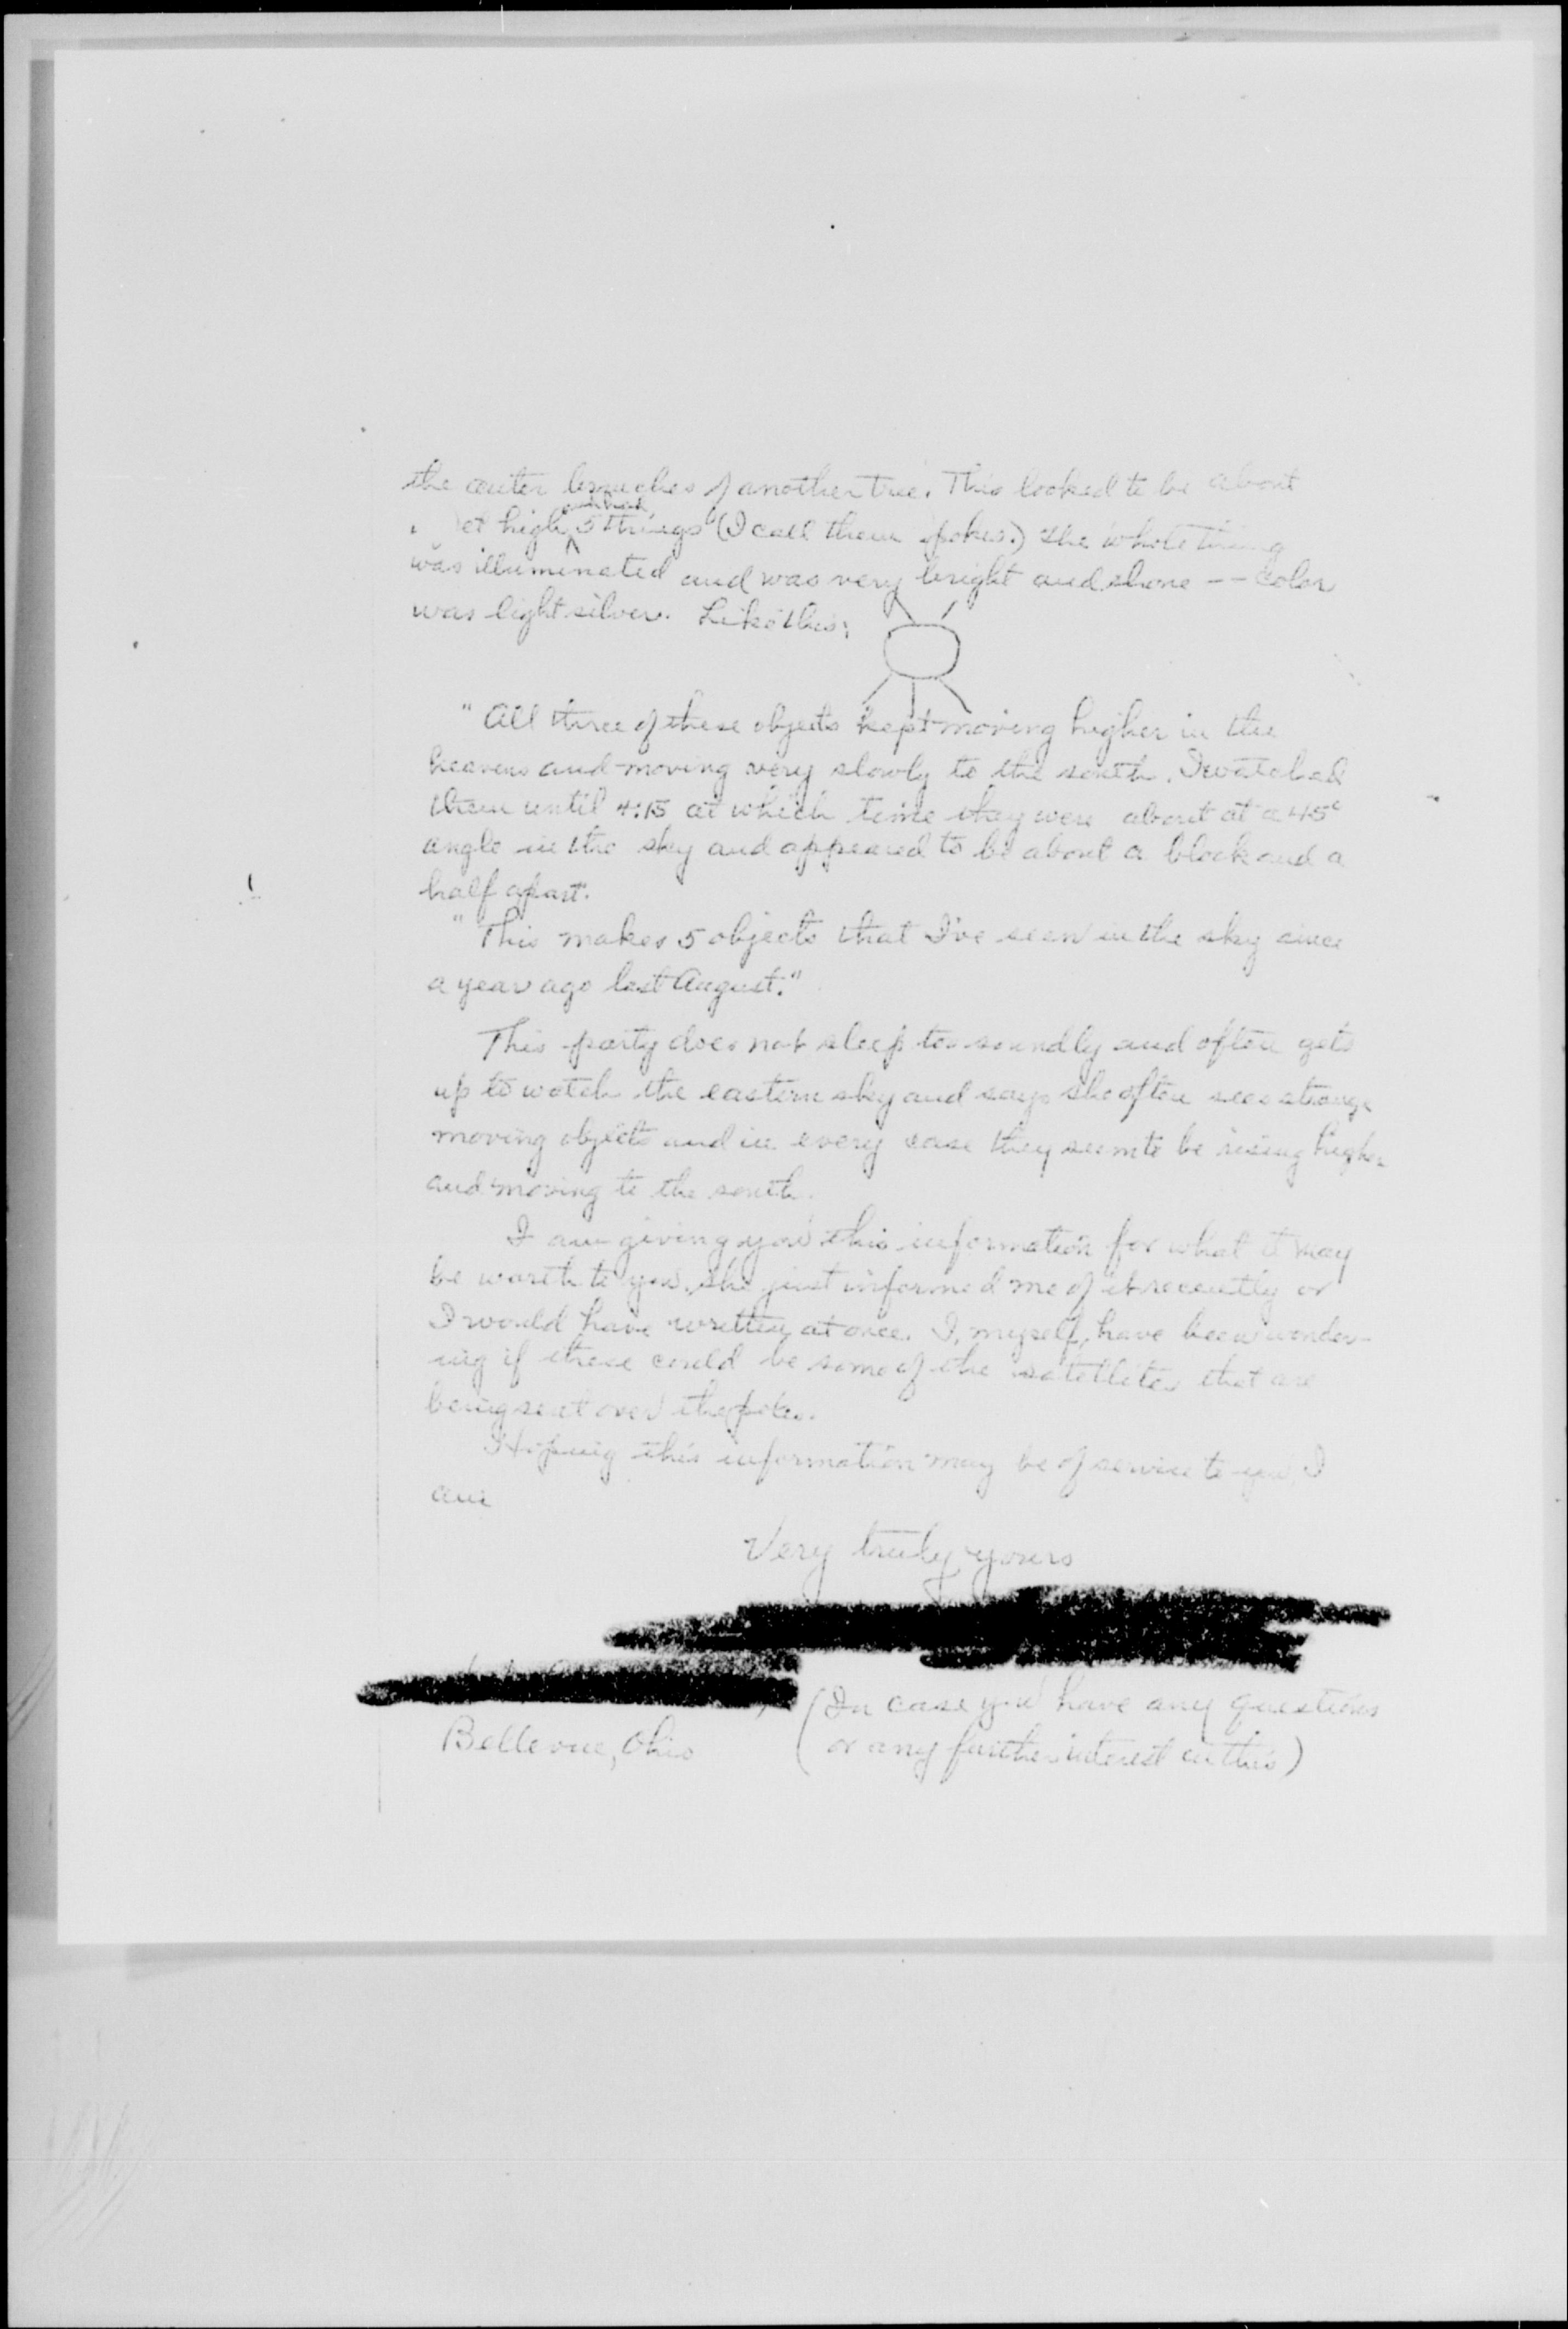 the outer branches of another tree. This looked to be about
et high and had 5 "things" (I call them spokes.) The whole thing
was illuminated and was very bright and shone -- color
was light silver. Like this:
"All three of these objects kept moving higher in the
heavens and moving very slowly to the south. I watched
them until 4:15 at which time they were about at a 45°
angle in the sky and appeared to be about a block and a
half apart."
"This makes 5 objects that I've seen in the sky since
a year ago last August."
This party does not sleep too soundly and often gets
up to watch the eastern sky and says she often sees strange
moving objects and in every case they seem to be rising higher
and moving to the south.
I am giving you this information for what it may
be worth to you. She just informed me of it recently or
I would have written at once. I, myself, have been wonder-
ing if these could be some of the satellites that are
being sent over the poles.
Hoping this information may be of service to you, I
am
Very truly yours
(In case you have any questions
Bellevue, Ohio or any further interest in this)